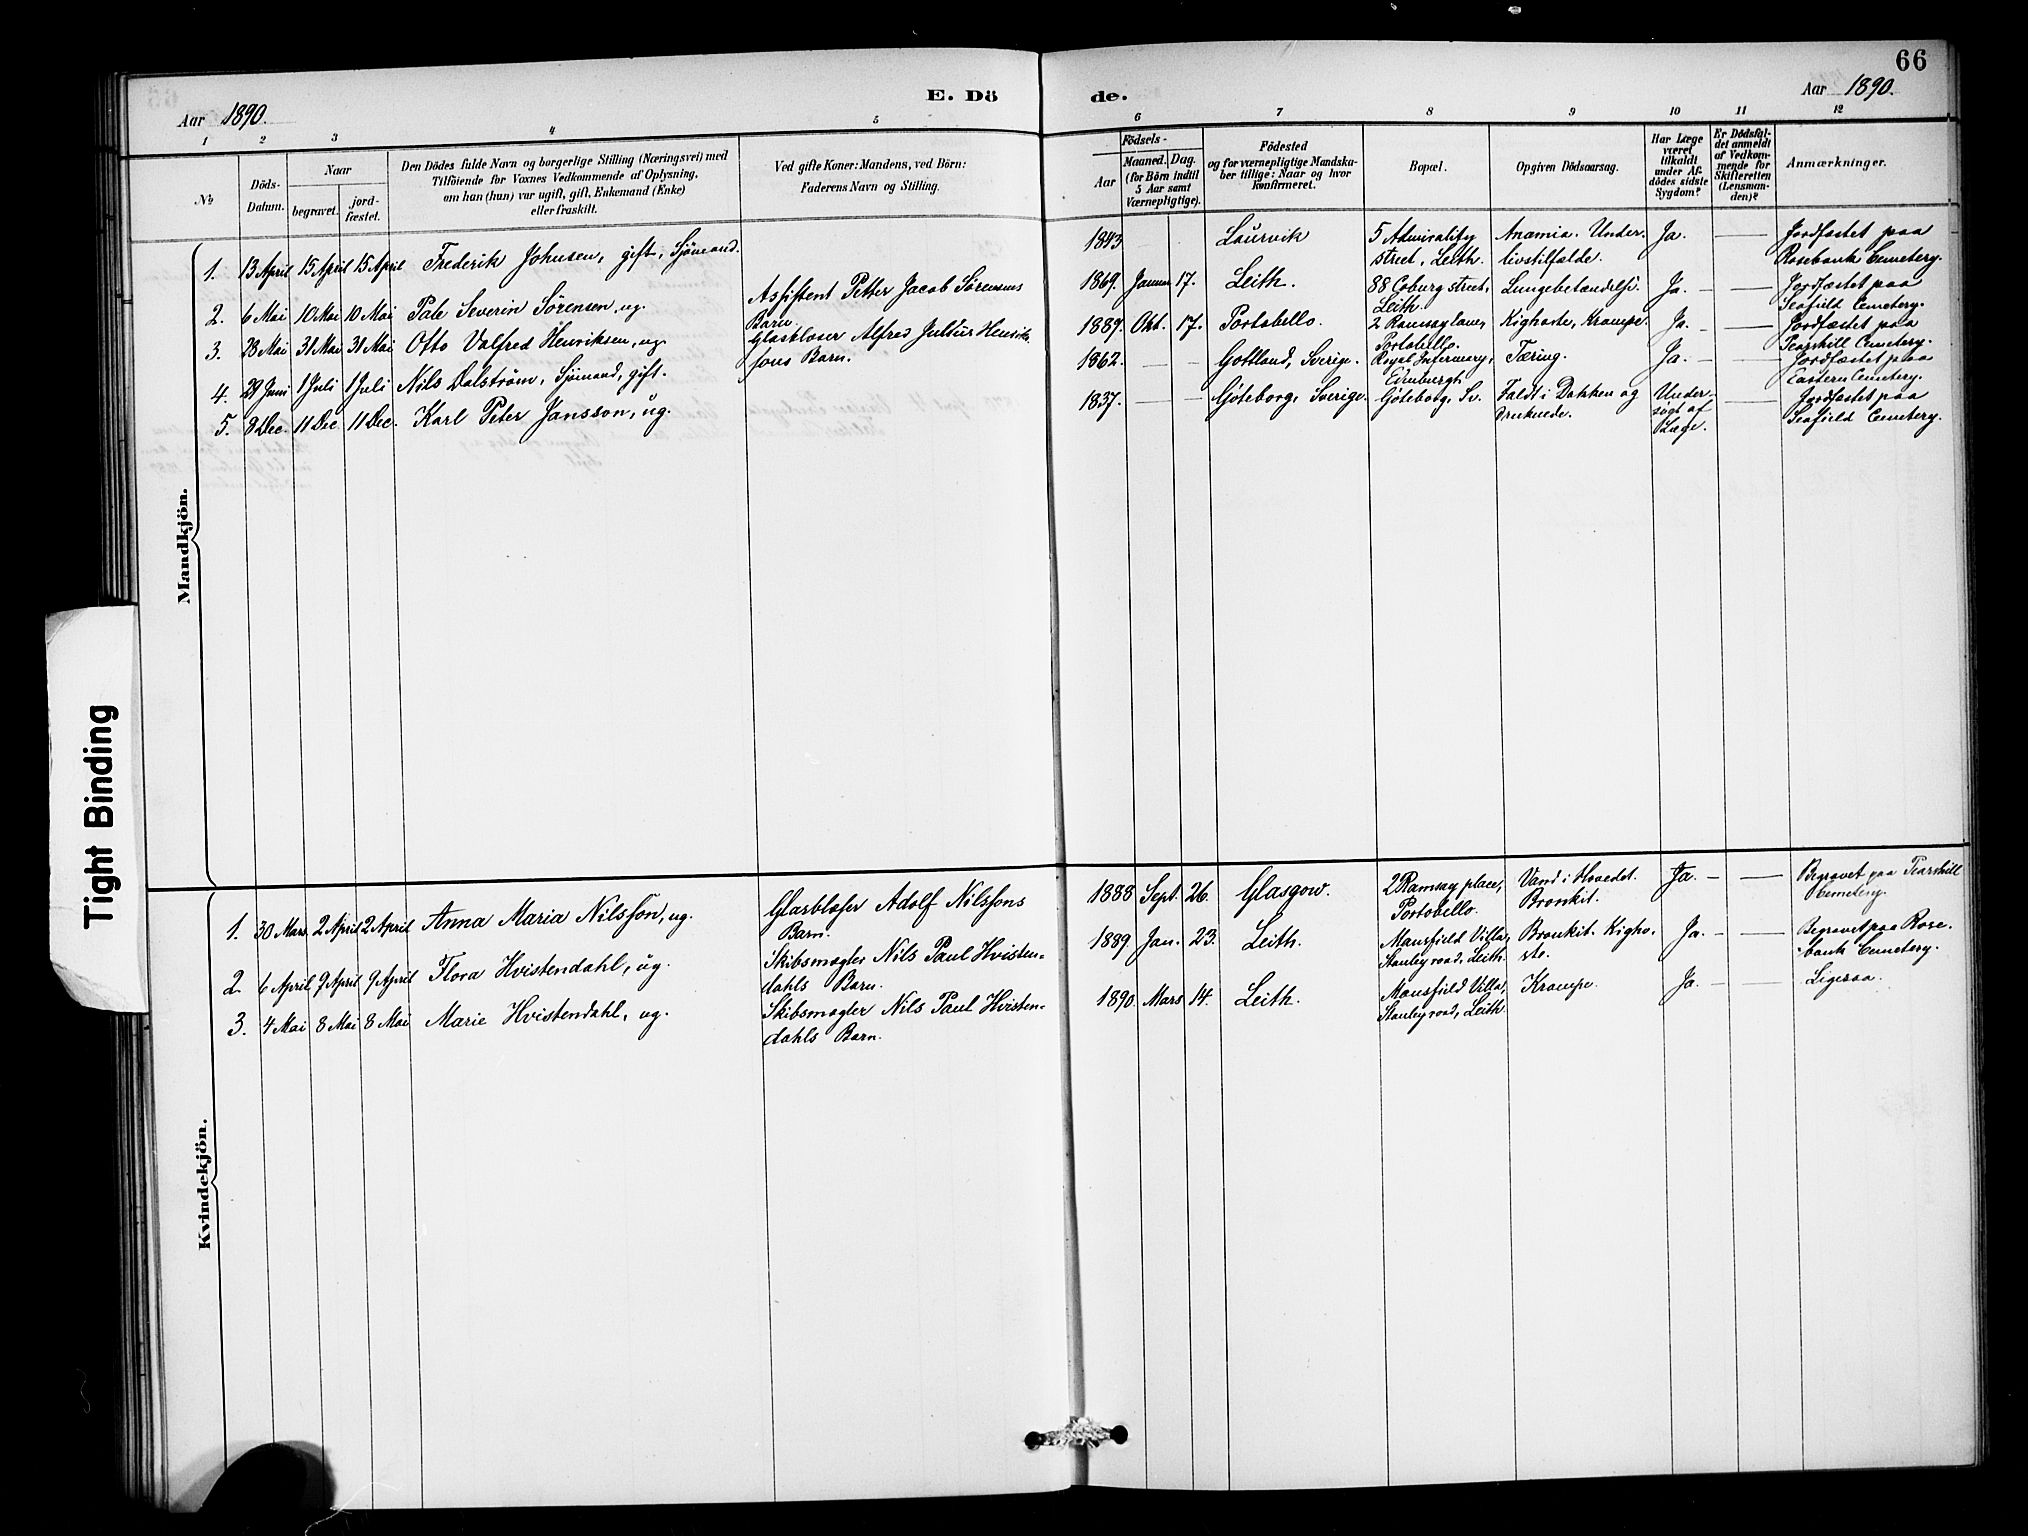 66
Aar 1890.
E. Dö
de.
Aar 1890.
1 2 3 4 5 6 7 8 9 10 11 12
No
Döds-
Datum.
Naar
begravet.
jord-
fæstet.
Den Dödes fulde Navn og borgerlige Stilling (Næringsvei) med
Tilföiende for Voxnes Vedkommende af Oplysning,
om han (hun) var ugift, gift, Enkemand (Enke)
eller fraskilt.
Ved gifte Koner: Mandens, ved Börn:
Faderens Navn og Stilling.
Födsels-
Aar
Maaned. Dag.
(for Börn indtil
5 Aar samt
Værnepligtige).
Födested
og for værnepligtige Mandska-
ber tillige: Naar og hvor
konfirmeret.
Bopæl.
Opgiven Dödsaarsag.
Har Læge
været
tilkaldt
under Af-
dödes sidste
Sygdom?
Er Dödsfal-
det anmeldt
af Vedkom-
mende for
Skifteretten
(Lensman-
den)?
Anmærkninger.
Mandkjön.
1. 13 April 15 April 15 April Frederik Johnsen, gift, Sjömand. 1843 Laurvik 5 Admirality Anæmia. Under- Ja. — Jordfæstet paa
street, Leith. livstilfælde. Rosebank Cemetery.
2. 6 Mai 10 Mai 10 Mai Pale Severin Sørensen, ug. Assistent Petter Jacob Sørensens 1869. Januar 17. Leith. 88 Coburg street, Lungebetændelse. Ja. — Jordfæstet paa
Barn. Leith. Seafield Cemetery.
3. 28 Mai 31 Mai 31 Mai Otto Valfred Henriksen, ug. Glasbloser Alfred Julius Henrik- 1889. Okt. 17. Portobello. 2 Ramsay lane, Kighoste, Krampe. Ja. — Jordfæstet paa
sens Barn. Portobello. Peirshill Cemetery.
4. 29 Juni 1 Juli 1 Juli Nils Dalström, Sjömand, gift. 1862. — — Gottland, Sverige. Royal Infirmary, Tæring. Ja. — Jordfæstet paa
Edinburgh Eastern Cemetery.
5. 8 Dec. 11 Dec. 11 Dec. Karl Peter Jansson, ug. 1837. — — Göteborg, Sverige. Göteborg, Sv. Faldt i Dokken og Under- — Jordfæstet paa
druknede. søgt af Seafield Cemetery.
Læge.
Kvindekjön.
1. 30 Mars 2 April 2 April Anna Maria Nilsson, ug. Glasblæser Adolf Nilssons 1888 Sept. 26. Glasgow. 2 Ramsay place, Vand i Hovedet. Ja. — Begravet paa Pearshill
Barn. Portobello. Bronkit. Cemetery.
2. 6 April 9 April 9 April Flora Hvistendahl, ug. Skibsmægler Nils Paul Hvisten- 1889 Jan. 23. Leith. Mansfield Villa, Bronkit. Kigho- Ja. — Begravet paa Rose-
dahls Barn. Stanley road, Leith. ste. bank Cemetery.
3. 4 Mai 8 Mai 8 Mai Marie Hvistendahl, ug. Skibsmægler Nils Paul Hvisten- 1890. Mars 14. Leith. Mansfield Villa, Krampe. Ja. — Ligesaa.
dahls Barn. Stanley road, Leith
Tight Binding